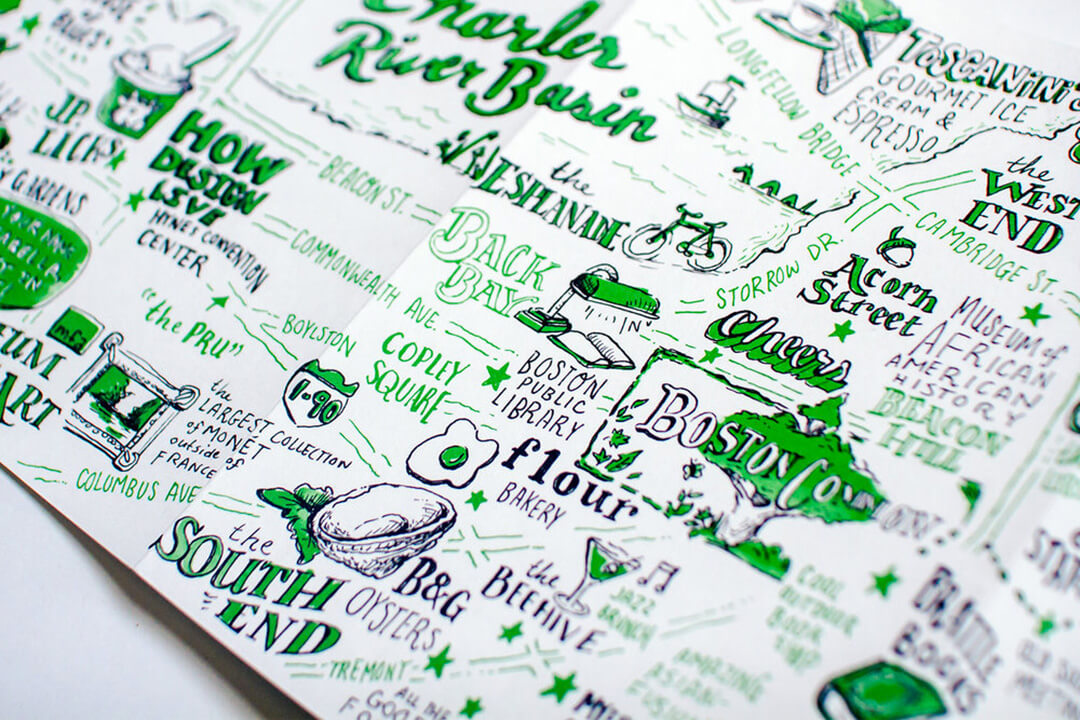 Charles
River Basin
LONGFELLOW BRIDGE
TOSCANINI'S
GOURMET ICE
CREAM &
ESPRESSO
JP
LICKS
HOW
DESIGN
LIVE
HYNES CONVENTION
CENTER
BEACON ST.
the
ESPLANADE
the
WEST
END
CAMBRIDGE ST.
GARDENS
COMMONWEALTH AVE.
BACK
BAY
STORROW DR.
Acorn
Street
MUSEUM of
AFRICAN
AMERICAN
HISTORY
Cheers
BEACON
HILL
"the PRU"
BOYLSTON
COPLEY
SQUARE
BOSTON
PUBLIC
LIBRARY
BOSTON COMMON
mfa
ART
I-90
the
LARGEST COLLECTION
of MONET
outside of
FRANCE
flour
BAKERY
COLUMBUS AVE
the
SOUTH
END
B&G
OYSTERS
the
BEEHIVE
JAZZ
BRUNCH
COOL
OUTDOOR
BOOK
BRATTLE
BOOKS
TREMONT
AMAZING
ASIAN-
ALL THE